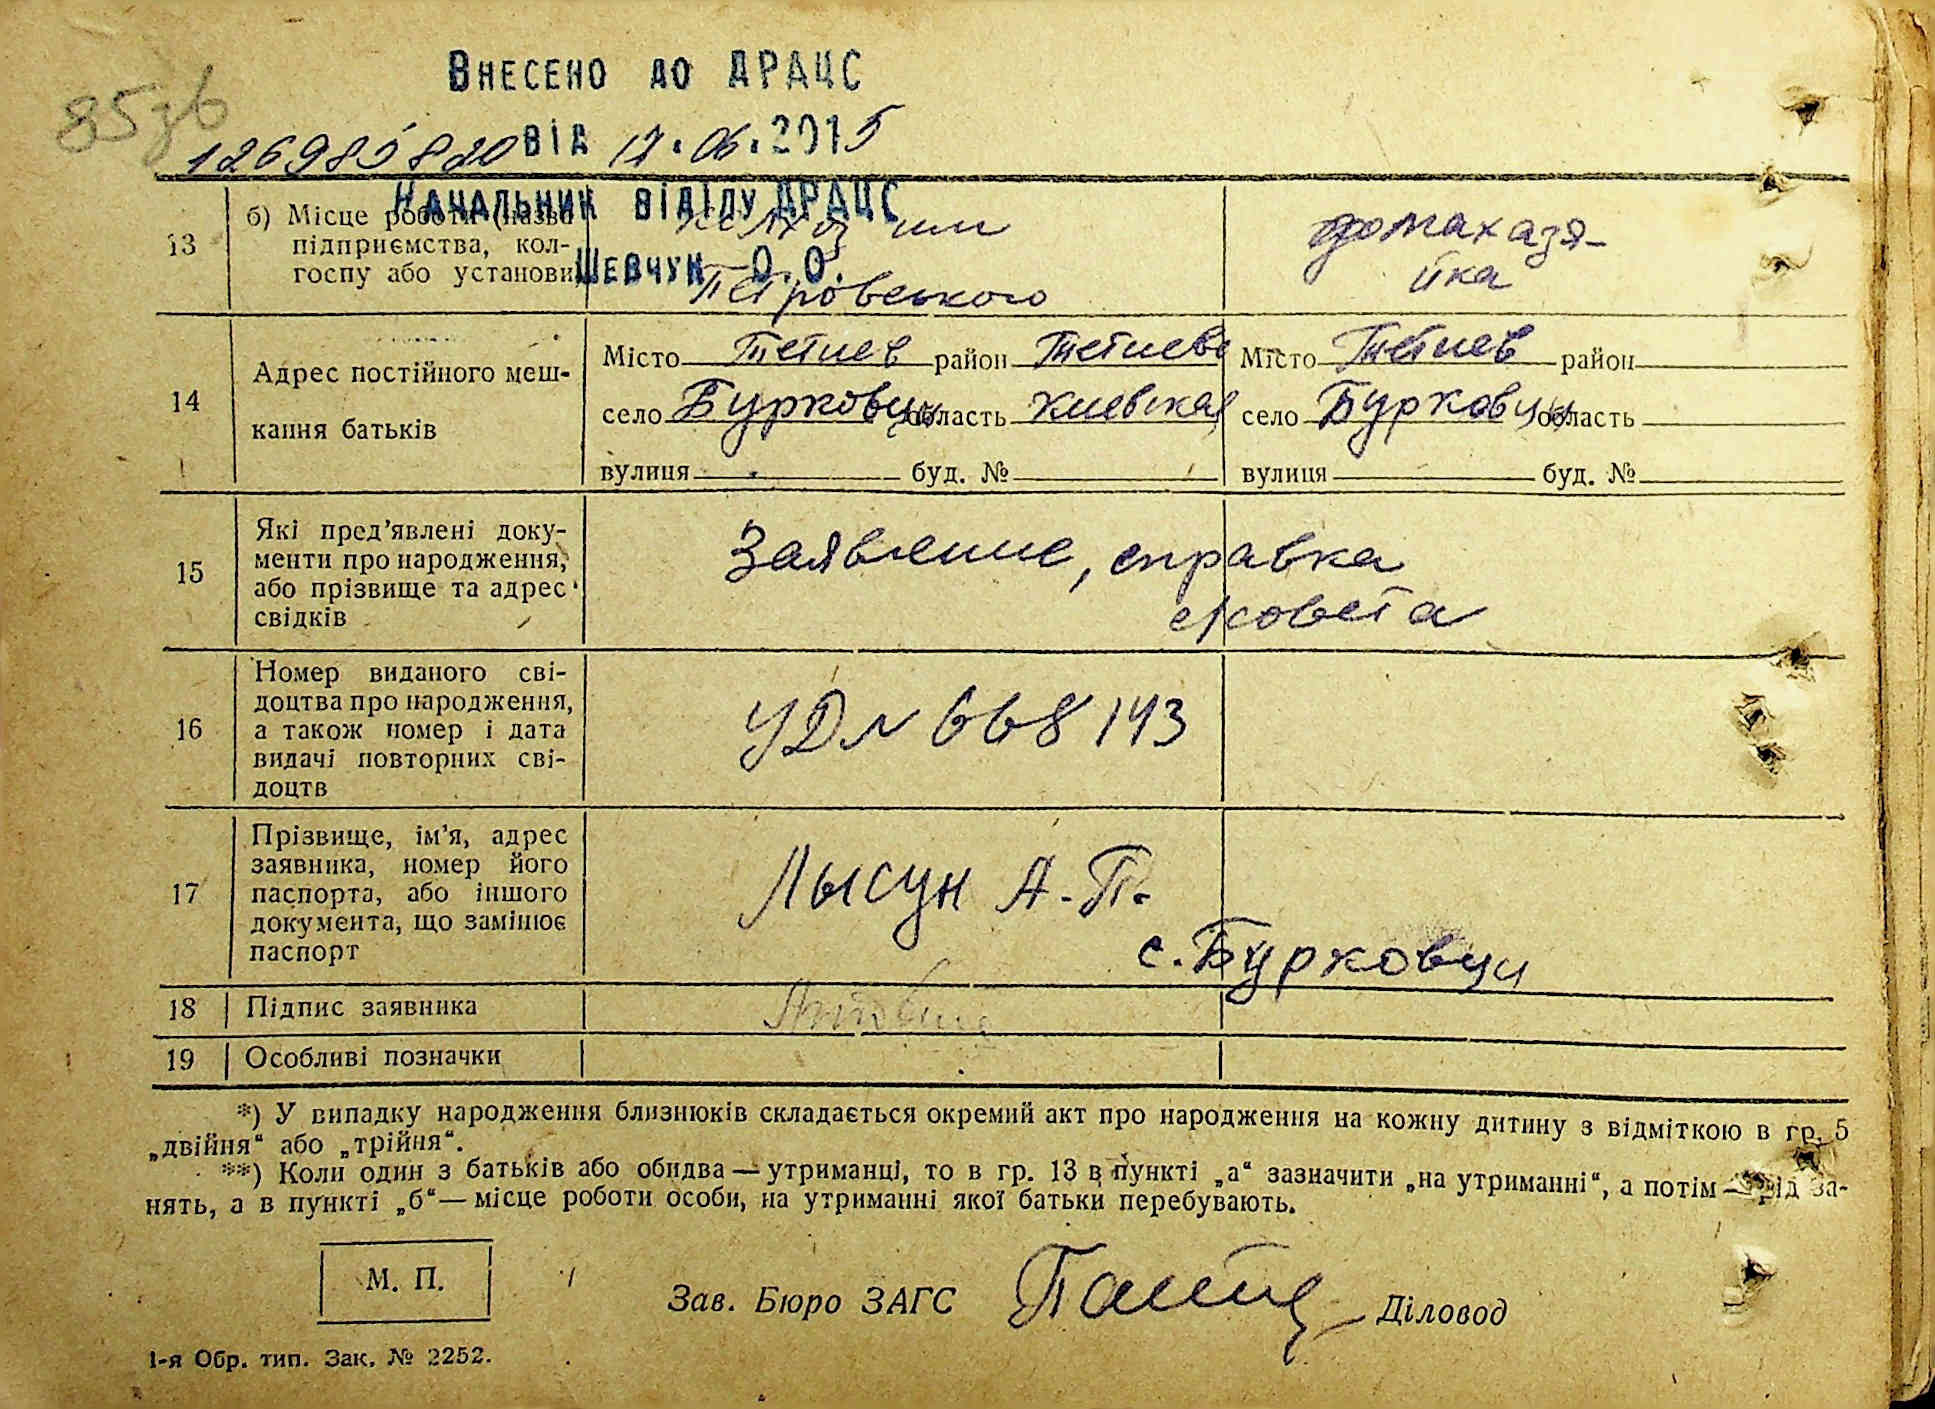 85зв
Внесено до ДРАЦС
126985820 від 17.06.2015
Начальник відділу ДРАЦС
Шевчук О.О.
13 б) Місце роботи (назва підприємства, кол-
госпу або установи)
колхоз им
Петровського
домахазя-
йка
14 Адрес постійного меш-
кання батьків
Місто Тетиев район Тетиевс
село Бурковци область Киевская
вулиця буд. №
Місто Тетиев район
село Бурковци область
вулиця буд. №
15 Які пред’явлені доку-
менти про народження,
або прізвище та адрес
свідків
Заявление, справка
с/совета
16 Номер виданого сві-
доцтва про народження,
а також номер і дата
видачі повторних сві-
доцтв
УДN 668143
17 Прізвище, ім’я, адрес
заявника, номер його
паспорта, або іншого
документа, що замінює
паспорт
Лысун А.П.
с. Бурковци
18 Підпис заявника
19 Особливі позначки
*) У випадку народження близнюків складається окремий акт про народження на кожну дитину з відміткою в гр. 5
„двійня“ або „трійня“.
**) Коли один з батьків або обидва — утриманці, то в гр. 13 в пункті „а“ зазначити „на утриманні“, а потім — рід за-
нять, а в пункті „б“ — місце роботи особи, на утриманні якої батьки перебувають.
М. П.
Зав. Бюро ЗАГС Діловод
1-я Обр. тип. Зак. № 2252.